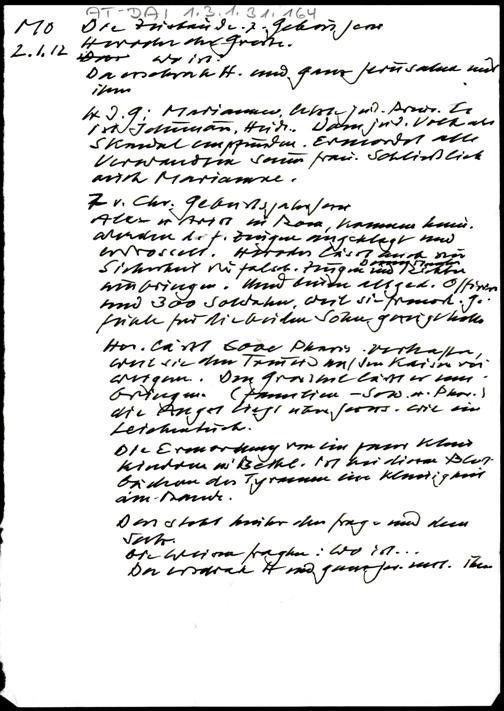 AT-DA1 1.3.1.31.164
MO Die Zustände z. Geburt Jesu
2.1.12 Herodes der Große.
wo ist:
Da erschrak H. und ganz Jerusalem mit
ihm
H. J. g: Mariamne, letzte jüd. Prinz. Er
ist Idumäer, Heide. Dem jüd. Volk als
Skandal empfunden. Ermordet alle
Verwandten seiner Frau. Schließlich
auch Mariamne.
7 v. Chr. Geburtsjahr Jesu
Alex u Arist in Rom, kommen heim.
werden d. f. Zeugen angeklagt und
erdrosselt. Herodes lässt
Sicherheit die falsch. Zeugen und
umbringen. Und Offiziere
und 300 Soldaten, weil sie
für die beiden Söhne gezeigt
Her. lässt 6000 Pharis. verhaften,
weil sie den Treueid auf den Kaiser ver
weigern. Den Großteil lässt er um-
bringen. (Familien - Sold. u. Phar.)
die Angst liegt über Jerus. wie ein
Leichentuch.
Die Ermordung von ein paar kleinen
Kindern in Betl. ist bei diesem Blut
des Tyrannen eine Kleinigkeit
am Rande.
Das steht hinter der Frage und dem
Satz.
Die Weisen fragen: Wo ist...
Da erschrak H und ganz Jer. mit. ihm